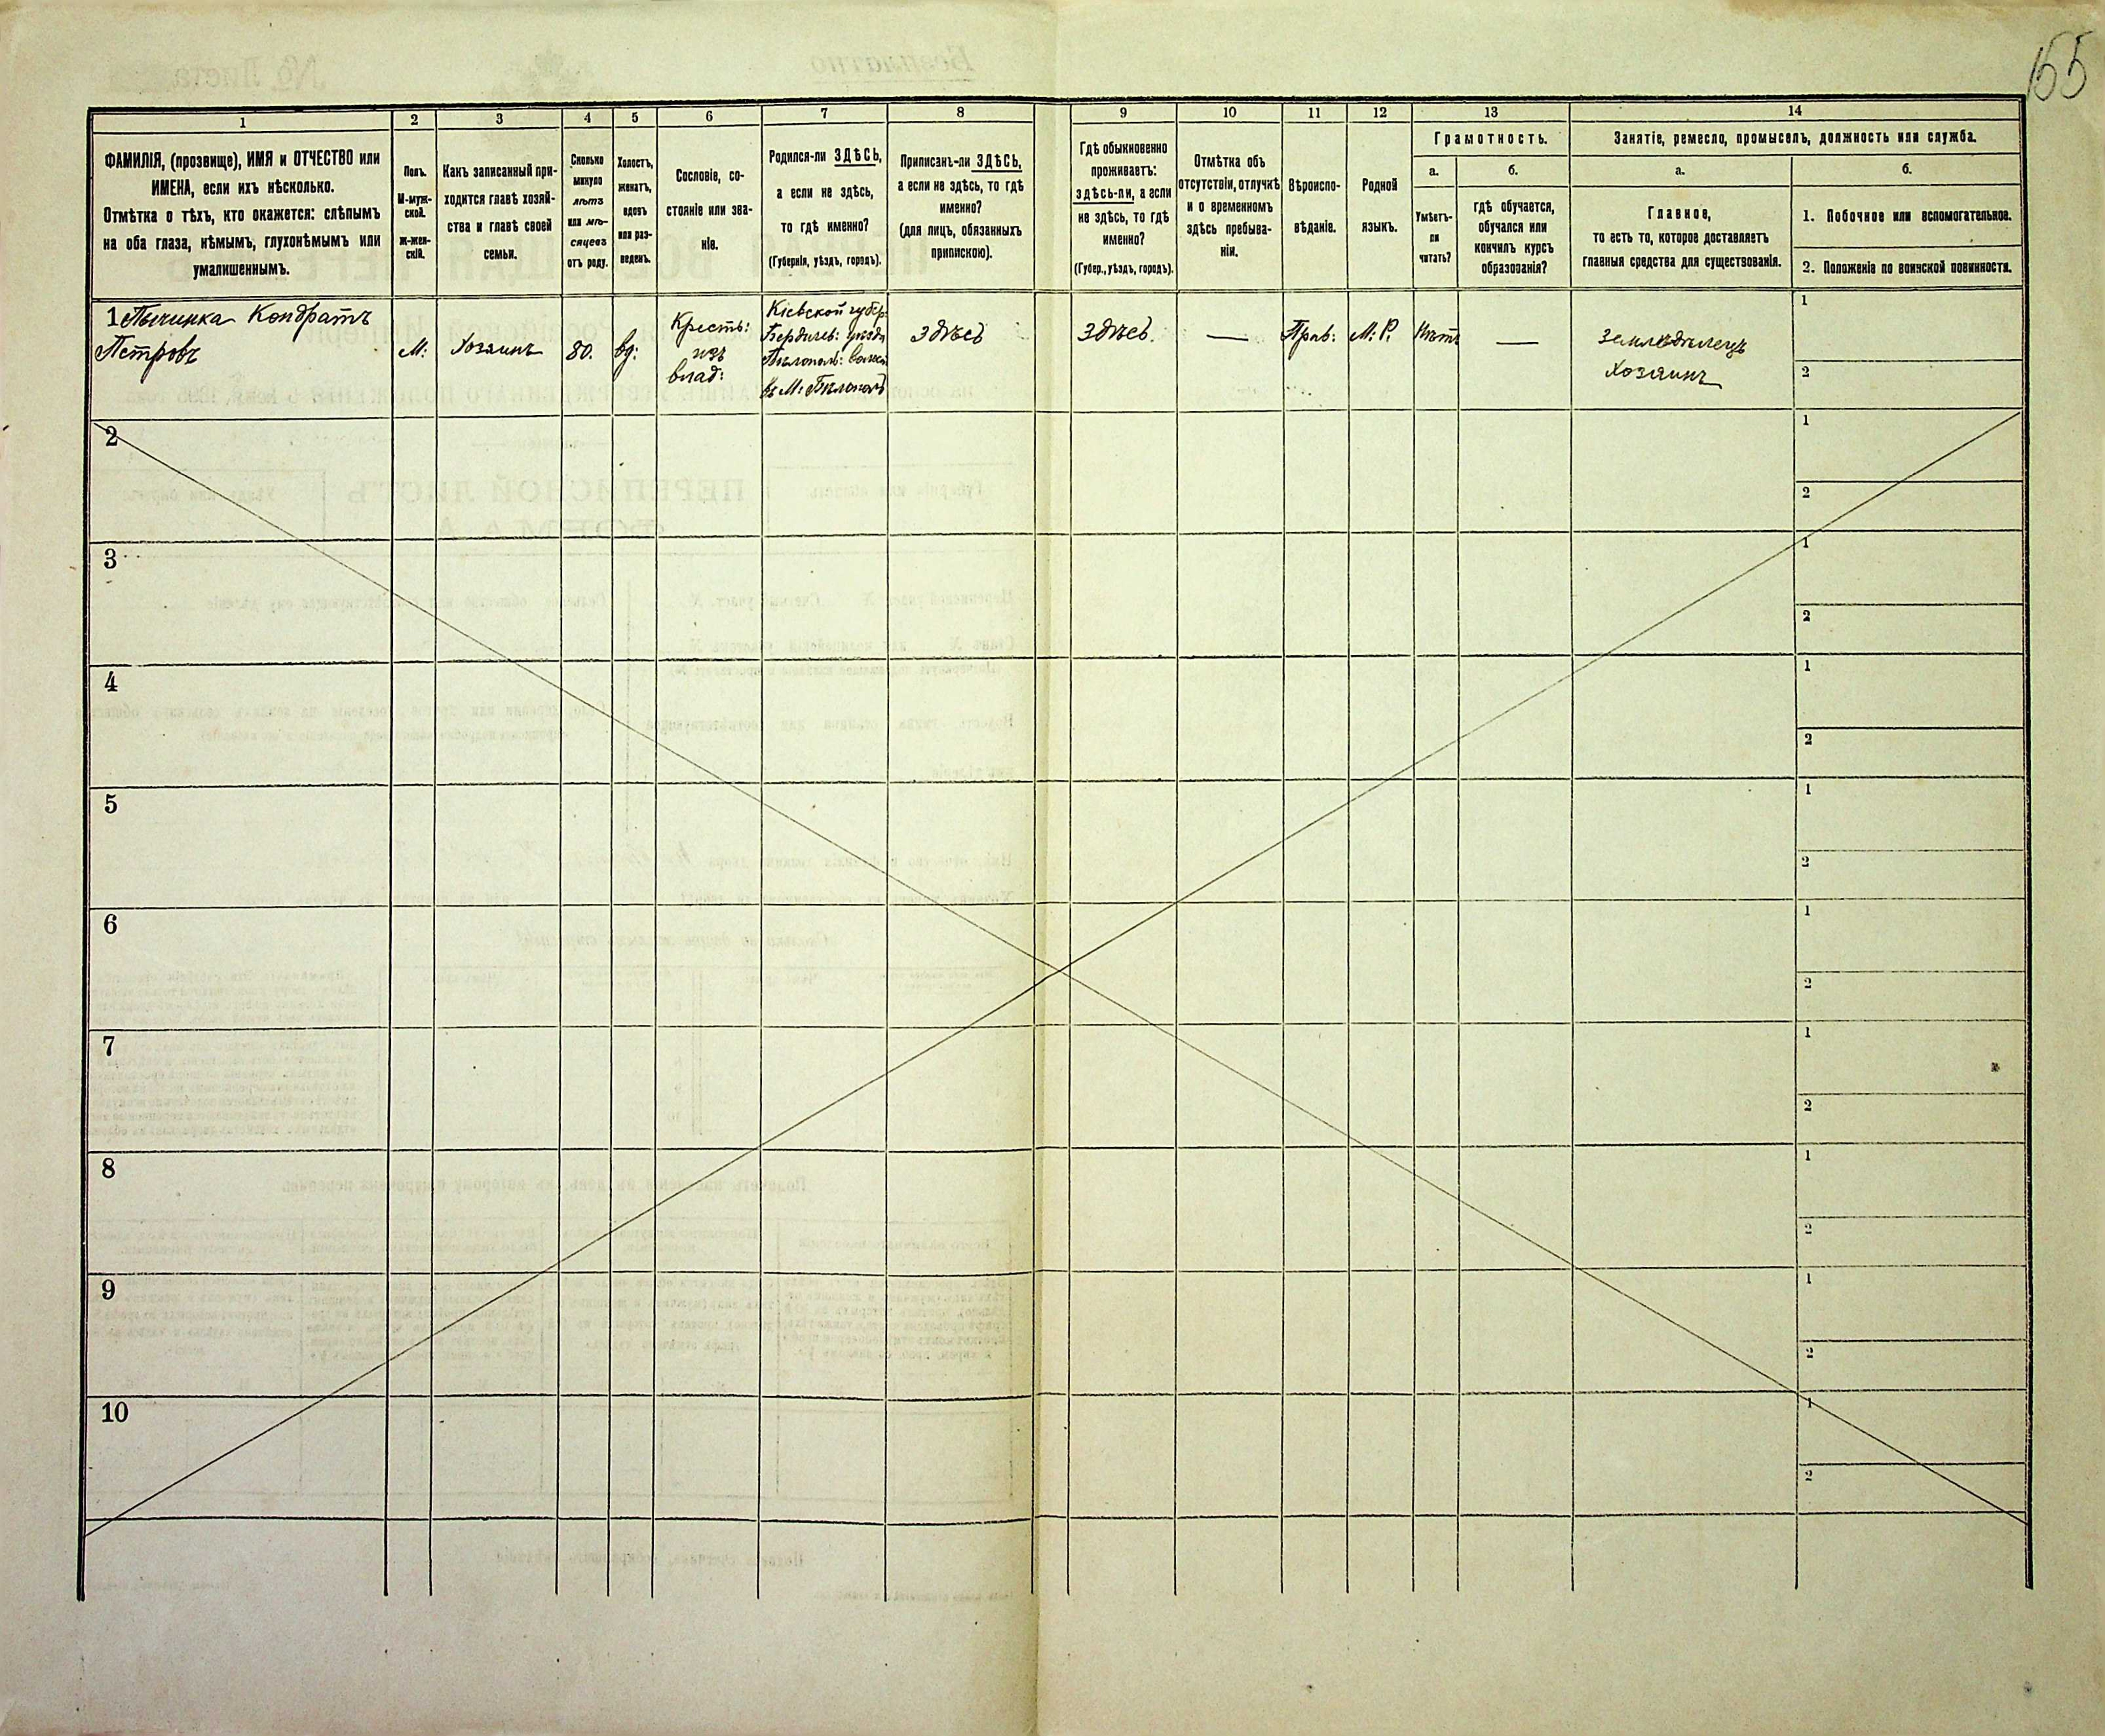 155
1
2
3
4
5
6
7
8
9
10
11
12
13
14
ФАМИЛІЯ, (прозвище), ИМЯ и ОТЧЕСТВО или
ИМЕНА, если ихъ нѣсколько.
Отмѣтка о тѣхъ, кто окажется: слѣпымъ
на оба глаза, нѣмымъ, глухонѣмымъ или
умалишеннымъ.
Полъ.
М-муж-
ской.
Ж-жен-
скій.
Какъ записанный при-
ходится главѣ хозяй-
ства и главѣ своей
семьи.
Сколько
минуло
лѣтъ
или мѣ-
сяцевъ
отъ роду.
Холостъ,
женатъ,
вдовъ
или раз-
веденъ.
Сословіе, со-
стояніе или зва-
ніе.
Родился-ли ЗДѢСЬ,
а если не здѣсь,
то гдѣ именно?
(Губернія, уѣздъ, городъ).
Приписанъ-ли ЗДѢСЬ,
а если не здѣсь, то гдѣ
именно?
(для лицъ, обязанныхъ
припискою).
Гдѣ обыкновенно
проживаетъ:
здѣсь-ли, а если
не здѣсь, то гдѣ
именно?
(Губер., уѣздъ, городъ).
Отмѣтка объ
отсутствіи, отлучкѣ
и о временномъ
здѣсь пребыва-
ніи.
Вѣроиспо-
вѣданіе.
Родной
языкъ.
Грамотность.
а.
Умѣетъ-
ли
читать?
б.
гдѣ обучается,
обучался или
кончилъ курсъ
образованія?
Занятіе, ремесло, промыселъ, должность или служба.
а.
Главное,
то есть то, которое доставляетъ
главныя средства для существованія.
б.
1. Побочное или вспомогательное.
2. Положеніе по воинской повинности.
1 Кондратъ
Петровъ
М:
Хозяинъ
80.
вд:
Крестъ:
изъ
влад:
Кіевской губер:
Бердичев: уѣзда
Бѣлопол: волос
въ М: Бѣлополѣ
здѣсь
здѣсь.
—
Прав:
М: Р.
Нѣтъ
—
Земледѣлецъ
Хозяинъ
1
2
2
1
2
3
1
2
4
1
2
5
1
2
6
1
2
7
1
2
8
1
2
9
1
2
10
1
2